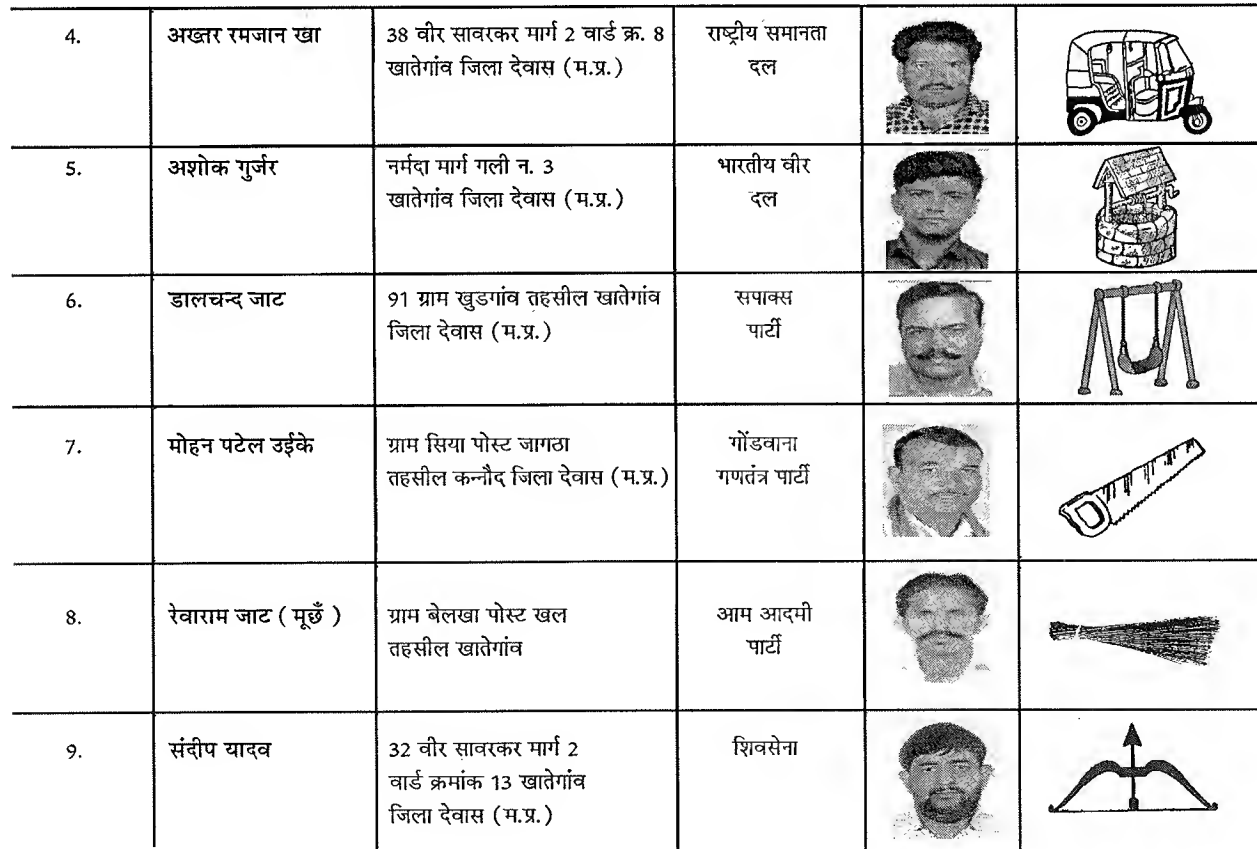 4.
अख्तर रमजान खा
38 वीर सावरकर मार्ग 2 वार्ड क्र. 8
खातेगांव जिला देवास (म.प्र.)
राष्ट्रीय समानता
दल
5.
अशोक गुर्जर
नर्मदा मार्ग गली न. 3
खातेगांव जिला देवास (म.प्र.)
भारतीय वीर
दल
6.
डालचन्द जाट
91 ग्राम खुडगांव तहसील खातेगांव
जिला देवास (म.प्र.)
सपाक्स
पार्टी
7.
मोहन पटेल उईके
ग्राम सिया पोस्ट जागठा
तहसील कन्नौद जिला देवास (म.प्र.)
गोंडवाना
गणतंत्र पार्टी
8.
रेवाराम जाट ( मूछँ )
ग्राम बेलखा पोस्ट खल
तहसील खातेगांव
आम आदमी
पार्टी
9.
संदीप यादव
32 वीर सावरकर मार्ग 2
वार्ड क्रमांक 13 खातेगांव
जिला देवास (म.प्र.)
शिवसेना